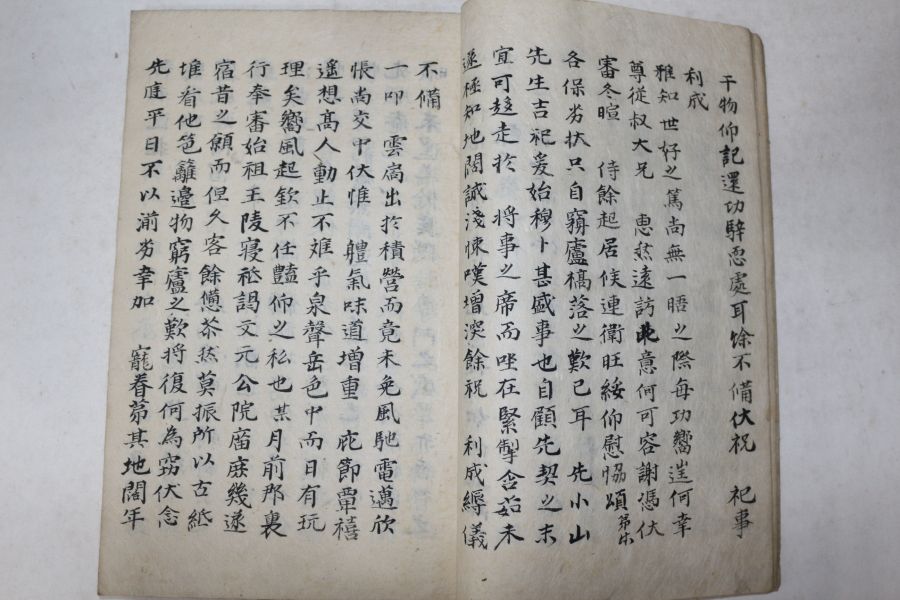 干物仰記還功騂恧處耳餘不備伏祝 祀事
利成
雅知世好之篤尚無一晤之際每功嚮逞何幸
尊從叔大兄 惠然遠訪此意何可容謝憑伏
審冬暄 侍餘起居候連衛旺綏仰慰恊頌 弟
各保劣狀只自竆廬槁落之歎已耳 先小山
先生吉祀爰始穆卜甚盛事也自顧先契之末
宜可趍走於 將事之席而坐在緊掣含茹未
遂極知地闊誠淺悚嘆增深餘祝 利成縟儀
不備
一叩 雲扃出於積營而竟未免風馳電邁欣
悵尚交中伏惟 軆氣味道增重 庇節覃禧
遥想高人動止不难乎泉聲岳色中而日有玩
理矣嚮風起欽不任豔仰之私也某月前那裏
行奉審始祖王陵寢祗謁文元公院廟庶幾遂
宿昔之願而但久客餘憊苶然莫振所以古紙
堆看他笆籬邊物窮廬之歎將復何為窃伏念
先庭平日不以湔劣幸加 寵眷第其地闊年